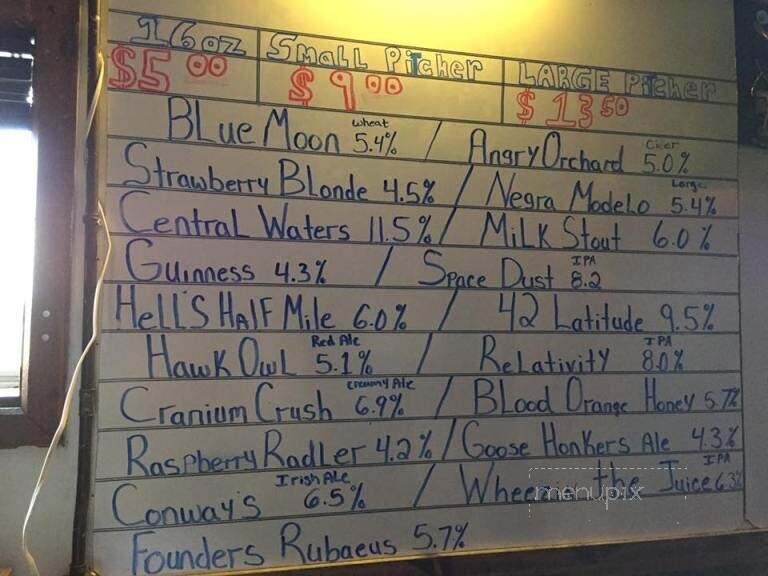 16oz | Small Pitcher | LARGE Pitcher
$5.00 | $9.00 | $13.50
Blue Moon Wheat 5.4% / Angry Orchard Cider 5.0%
Strawberry Blonde 4.5% / Negra Modelo Larger 5.4%
Central Waters 11.5% / Milk Stout 6.0%
Guinness 4.3% / Space Dust IPA 8.2
Hell's Half Mile 6.0% / 42 Latitude 9.5%
Hawk Owl Red Ale 5.1% / Relativity IPA 8.0%
Cranium Crush Creamy Ale 6.9% / Blood Orange Honey 5.7%
Raspberry Radler 4.2% / Goose Honkers Ale 4.3%
Conway's Irish Ale 6.5% / the Juice IPA 6.3%
Founders Rubaeus 5.7%
menupix